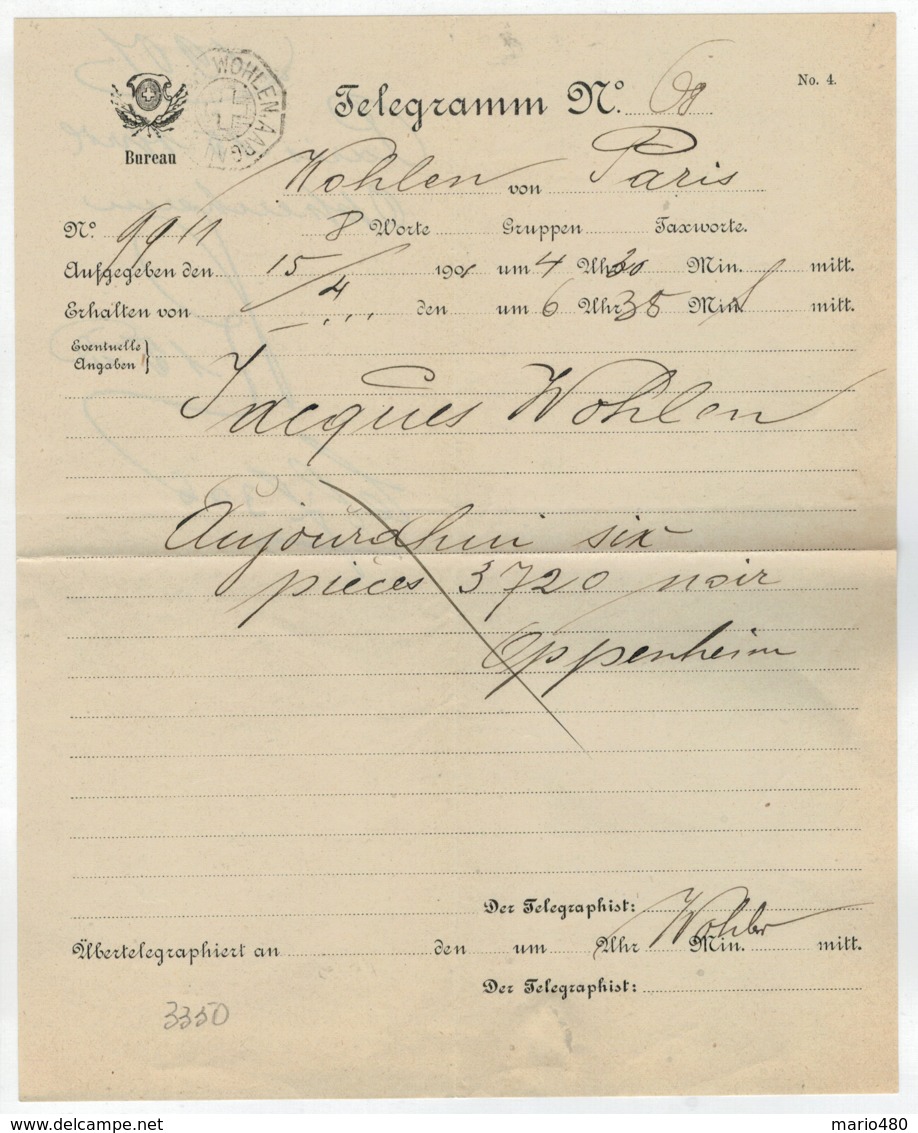 No. 4.
WOHLEN (AARGAU)
Telegramm No. 68
Bureau
Wohlen von Paris
No. 9911 8 Worte Gruppen Taxworte.
Aufgegeben den 15/4 190 um 4 Uhr 30 Min. mitt.
Erhalten von den um 6 Uhr 35 Min. mitt.
Eventuelle
Angaben
Jacques Wohlen
Aujourdhui six
pièces 3720 noir
Oppenheim
Der Telegraphist:
Übertelegraphiert an den um Uhr Min. mitt.
Der Telegraphist:
3350
mario480